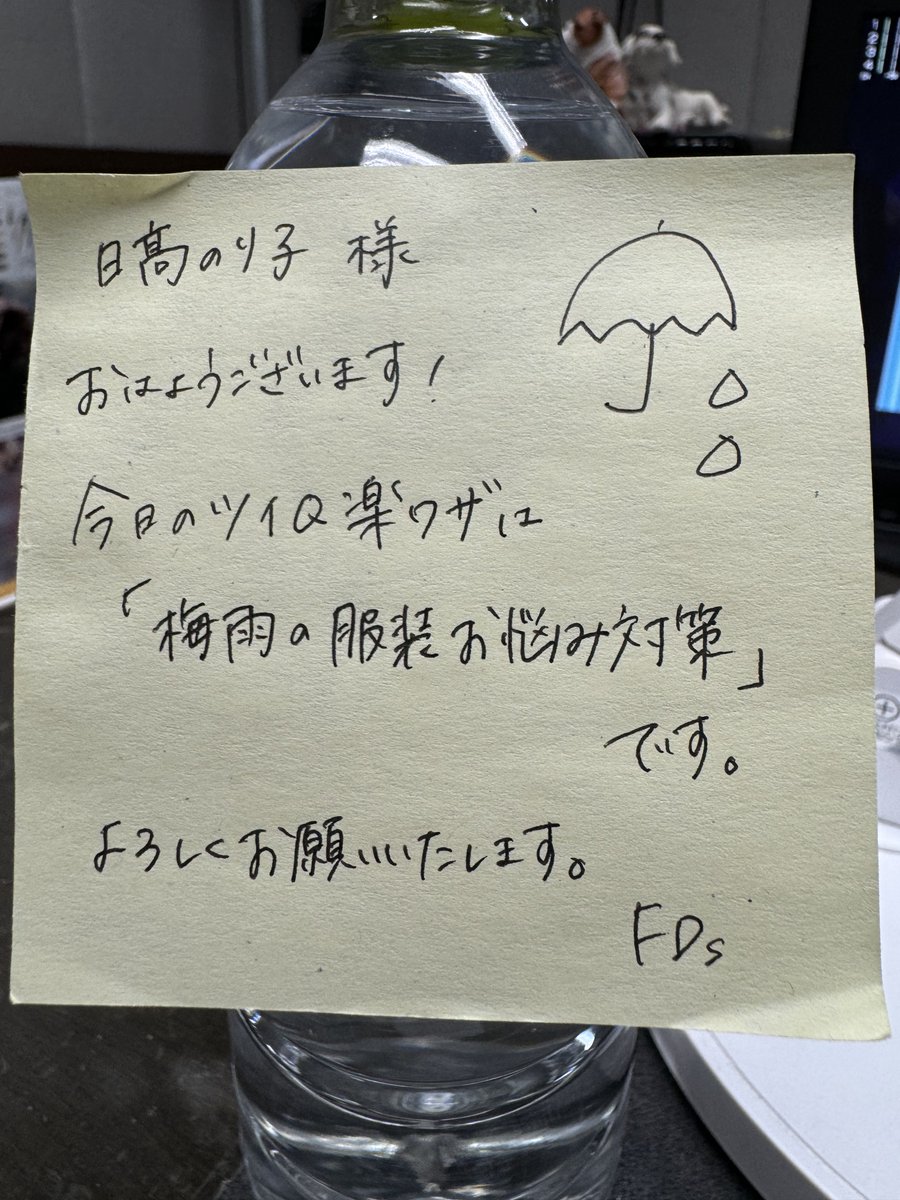 日髙のり子 様
おはようございます!
今日のツイQ楽ワザは
「梅雨の服装お悩み対策」
です。
よろしくお願いいたします。
FDs